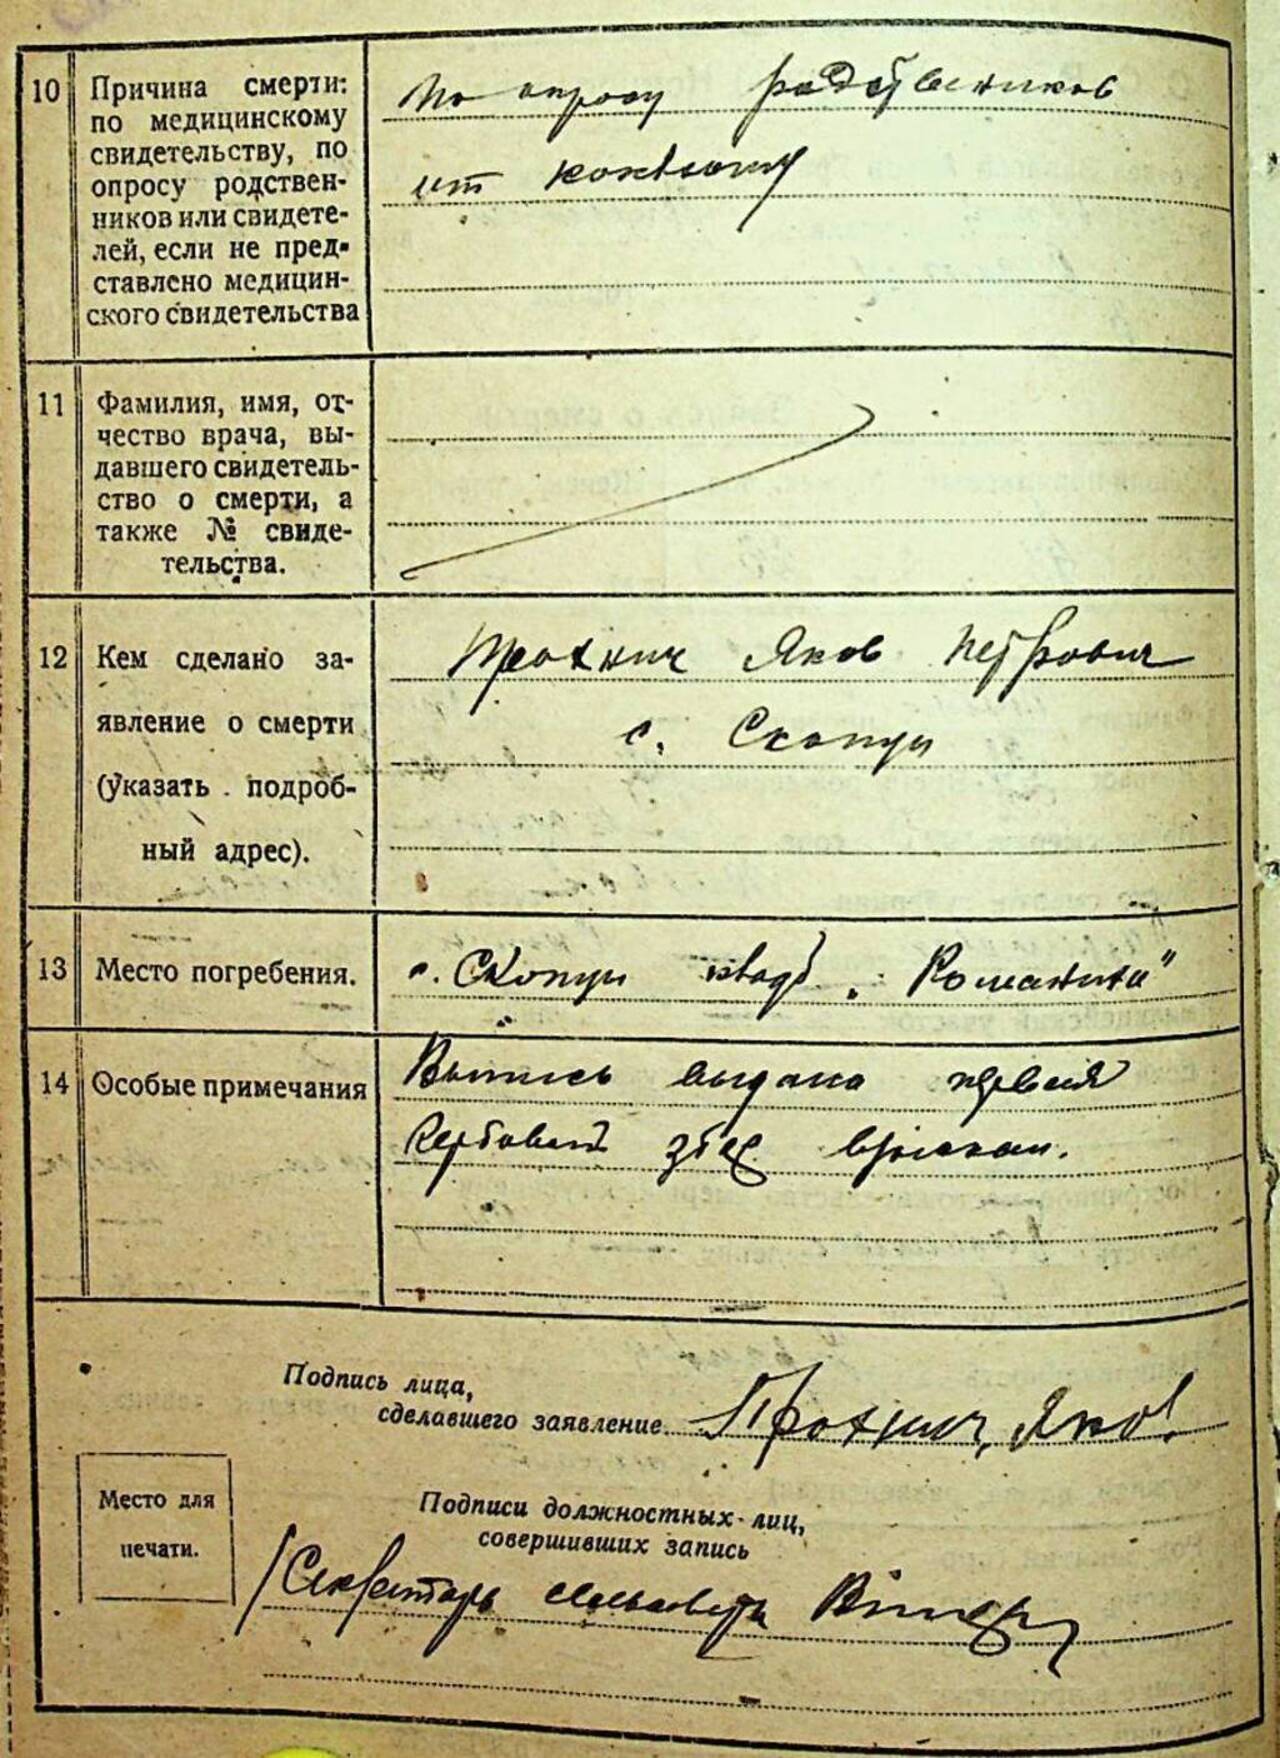 10 Причина смерти:
по медицинскому
свидетельству, по
опросу родствен-
ников или свидете-
лей, если не пред-
ставлено медицин-
ского свидетельства
По опросу родствеников
от
11 Фамилия, имя, от-
чество врача, вы-
давшего свидетель-
ство о смерти, а
также № свиде-
тельства.
12 Кем сделано за-
явление о смерти
(указать подроб-
ный адрес).
Трохнич Яков Петрович
с. Скопци
13 Место погребения.
с. Скопци кладб. "Романиха"
14 Особые примечания
Выпись выдана первая
Подпись лица,
сделавшего заявление.
Трохнич, Яков
Место для
печати.
Подписи должностных лиц,
совершивших запись
Секретарь сельсовета